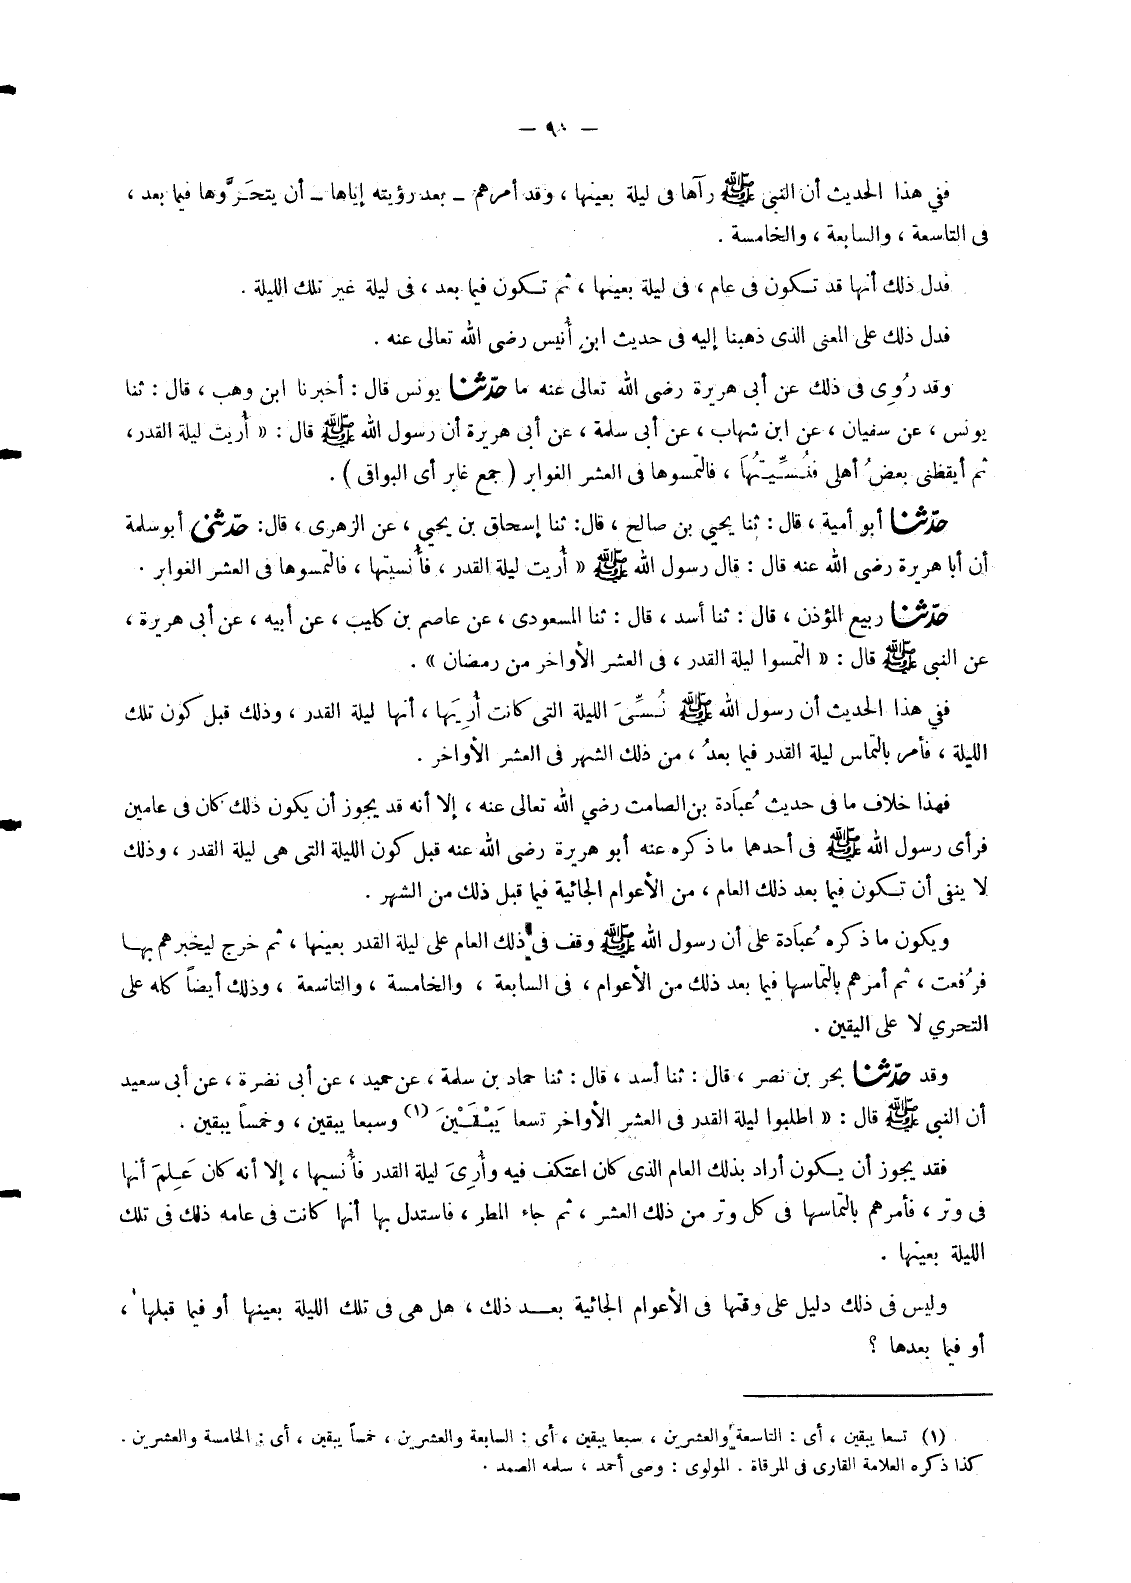 — ٩٠ —
ففي هذا الحديث أن النبى ﷺ رآها فى ليلة بعينها ، وقد أمرهم ــ بعد رؤيته إياها ــ أن يتحَرَّوها فيما بعد ،
فى التاسعة ، والسابعة ، والخامسة .
فدل ذلك أنها قد تكون فى عام ، فى ليلة بعينها ، ثم تكون فيما بعد ، فى ليلة غير تلك الليلة .
فدل ذلك على المعنى الذى ذهبنا إليه فى حديث ابن أُنيس رضى الله تعالى عنه .
وقد رُوِى فى ذلك عن أبى هريرة رضى الله تعالى عنه ما حدّثنا يونس قال : أخبرنا ابن وهب ، قال : ثنا
يونس ، عن سفيان ، عن ابن شهاب ، عن أبى سلمة ، عن أبى هريرة أن رسول الله ﷺ قال : « أُريت ليلة القدر،
ثم أيقظنى بعضُ أهلى فنُسِّيتُهَا ، فالتمسوها فى العشر الغوابر ( جمع غابر أى البواقى ) .
حدّثنا أبو أمية ، قال : ثنا يحيى بن صالح ، قال: ثنا إسحاق بن يحيي ، عن الزهرى ، قال: حدّثنى أبوسلمة
أن أبا هريرة رضى الله عنه قال : قال رسول الله ﷺ « أُريت ليلة القدر ، فأُنسيتها ، فالتمسوها فى العشر الغوابر .
حدّثنا ربيع المؤذن ، قال : ثنا أسد ، قال : ثنا المسعودى ، عن عاصم بن كليب ، عن أبيه ، عن أبى هريرة ،
عن النبى ﷺ قال : « التمسوا ليلة القدر ، فى العشر الأواخر من رمضان » .
ففي هذا الحديث أن رسول الله ﷺ نُسِّىَ الليلة التى كانت أُرِيَها ، أنها ليلة القدر ، وذلك قبل كون تلك
الليلة ، فأمر بالتماس ليلة القدر فيما بعدُ ، من ذلك الشهر فى العشر الأواخر .
فهذا خلاف ما فى حديث عُبَادة بن الصامت رضي الله تعالى عنه ، إلا أنه قد يجوز أن يكون ذلك كان فى عامين
فرأى رسول الله ﷺ فى أحدهما ما ذكره عنه أبو هريرة رضى الله عنه قبل كون الليلة التى هى ليلة القدر ، وذلك
لا ينفى أن تكون فيما بعد ذلك العام ، من الأعوام الجائية فيما قبل ذلك من الشهر .
ويكون ما ذكره عُبَادة على أن رسول الله ﷺ وقف فى ذلك العام على ليلة القدر بعينها ، ثم خرج ليخبرهم بها
فرُفعت ، ثم أمرهم بالتماسها فيما بعد ذلك من الأعوام ، فى السابعة ، والخامسة ، والتاسعة ، وذلك أيضاً كله على
التحري لا على اليقين .
وقد حدّثنا بحر بن نصر ، قال : ثنا أسد ، قال : ثنا حماد بن سلمة ، عن حميد ، عن أبى نضرة ، عن أبى سعيد
أن النبى ﷺ قال : « اطلبوا ليلة القدر فى العشر الأواخر تسعا يَبْقَيْنَ (١) وسبعا يبقين ، وخمساً يبقين .
فقد يجوز أن يكون أراد بذلك العام الذى كان اعتكف فيه وأُرىَ ليلة القدر فأُنسيها ، إلا أنه كان عَلِمَ أنها
فى وتر ، فأمرهم بالتماسها فى كل وتر من ذلك العشر ، ثم جاء المطر ، فاستدل بها أنها كانت فى عامه ذلك فى تلك
الليلة بعينها .
وليس فى ذلك دليل على وقتها فى الأعوام الجائية بعد ذلك ، هل هى فى تلك الليلة بعينها أو فيما قبلها ،
أو فيما بعدها ؟
(١) تسعا يبقين ، أى : التاسعة والعشرين ، سبعا يبقين ، أى : السابعة والعشرين ، خمساً يبقين ، أى : الخامسة والعشرين .
كذا ذكره العلامة القارى فى المرقاة . المولوى : وصى أحمد ، سلمه الصمد .